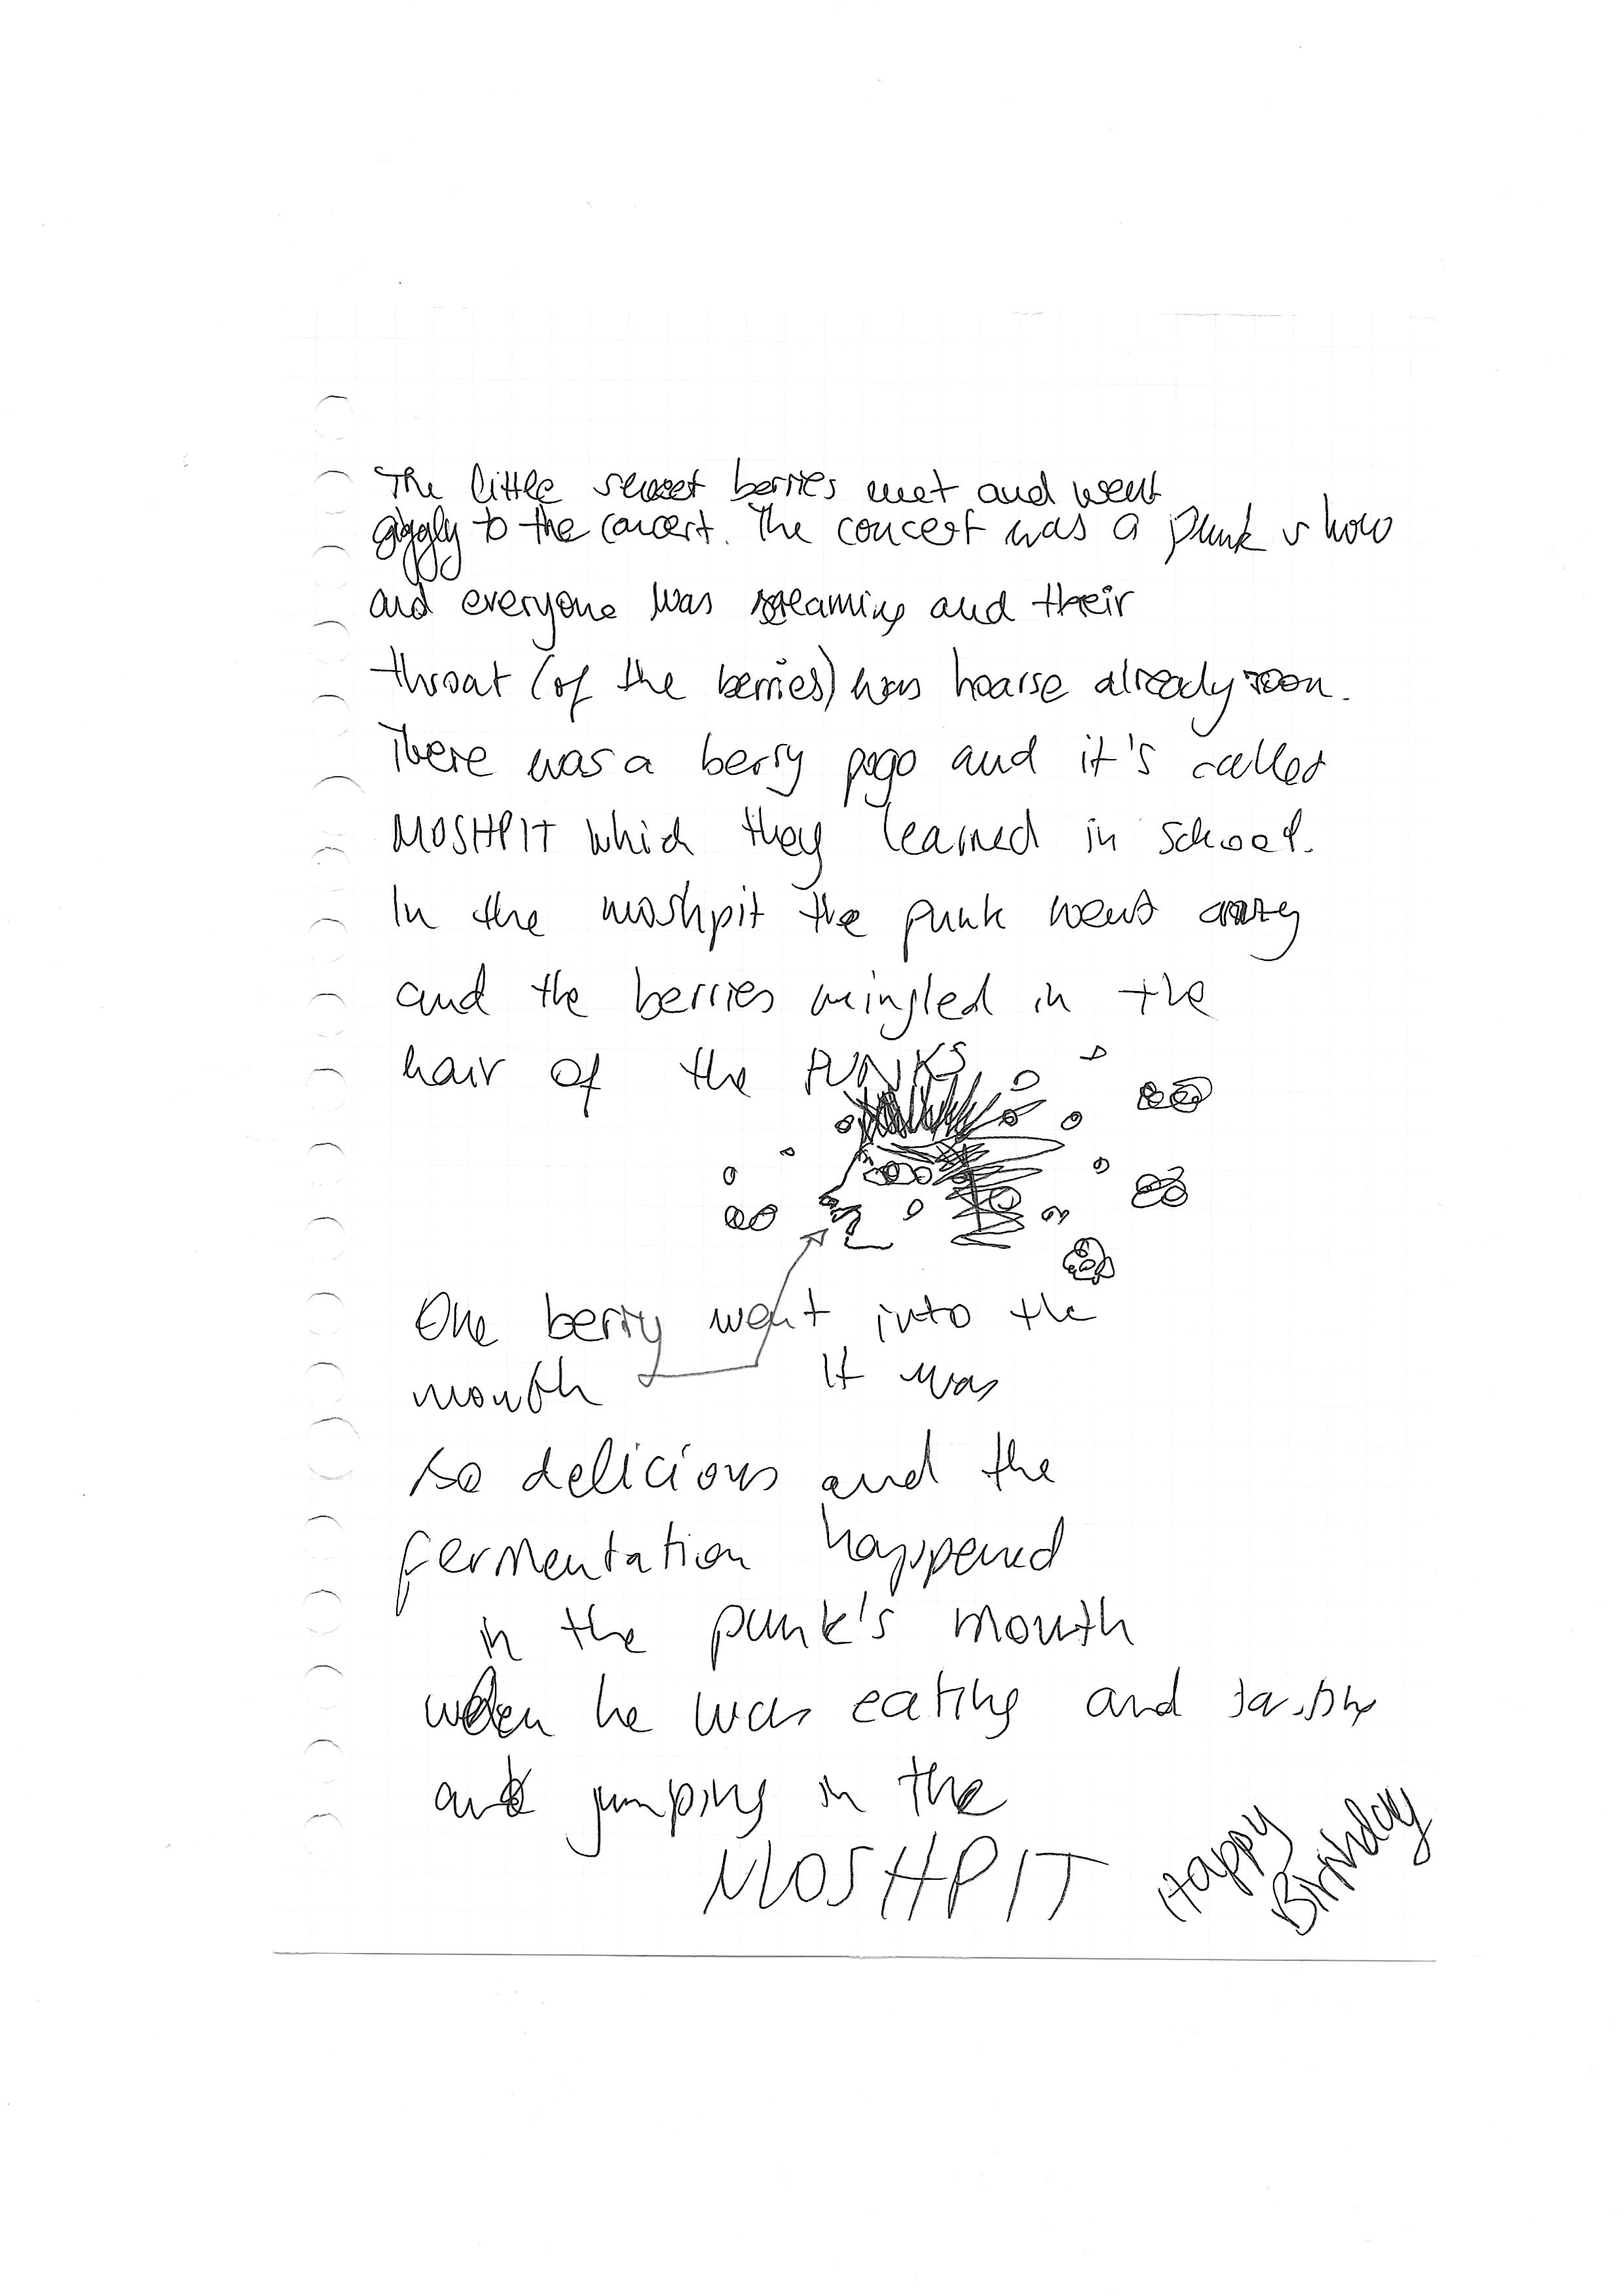 The little sweet berries met and went
giggly to the concert. The concert was a punk show
and everyone was screaming and their
throat (of the berries) was hoarse already soon.
There was a berry pogo and it's called
MOSHPIT which they learned in school.
In the moshpit the punk went crazy
and the berries mingled in the
hair of the PUNKS
One berry went into the
mouth It was
so delicious and the
fermentation happened
in the punk's mouth
when he was eating and
and jumping in the
MOSHPIT
Happy
Birthday